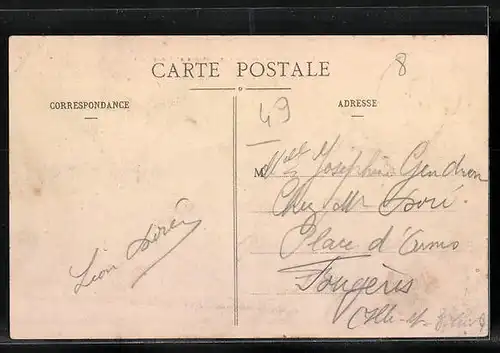 CARTE POSTALE
CORRESPONDANCE
ADRESSE
8
49
Mlle Joséphine Gendron
Chez Mr Doré
Place d'Armes
Fougères
(Ille-et-Vilaine)
Léon